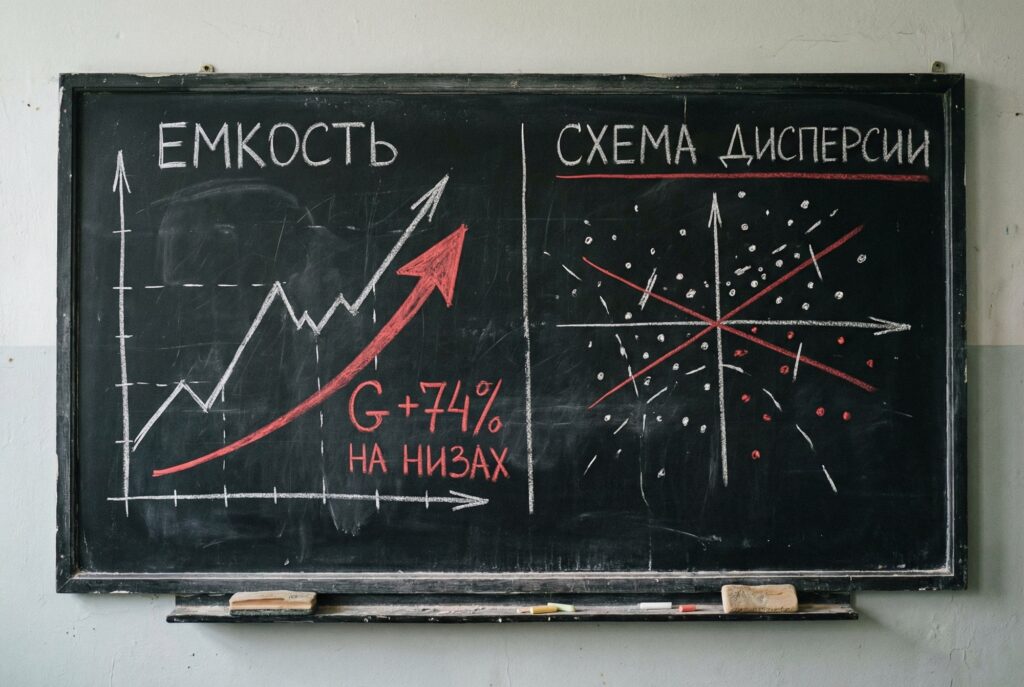 ЕМКОСТЬ
G+74%
НА НИЗАХ
СХЕМА ДИСПЕРСИИ